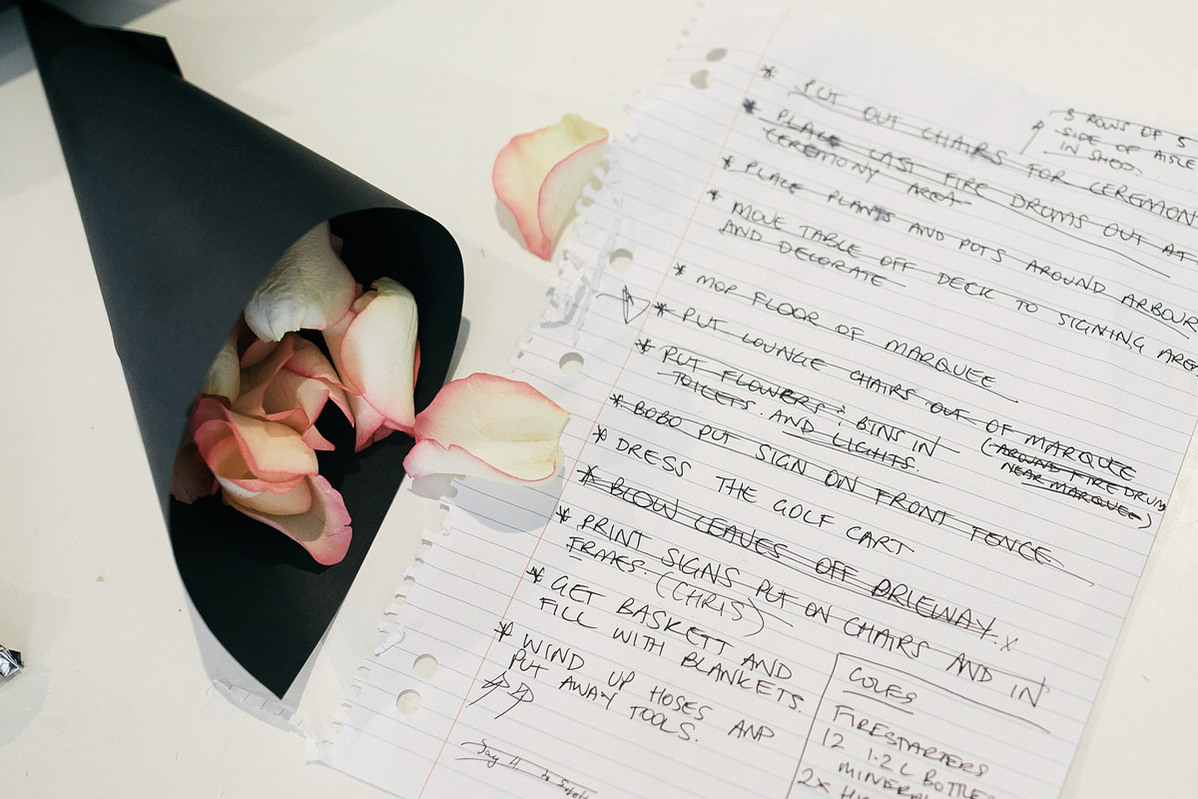 * PUT OUT CHAIRS FOR CEREMONY
3 ROWS OF 5
SIDE OF AISLE
IN SHED.
* PLACE LAST FIRE DRUMS OUT AT
CEREMONY AREA
* PLACE PLANTS AND POTS AROUND ARBOUR
* MOVE TABLE OFF DECK TO SIGNING AREA
AND DECORATE
* MOP FLOOR OF MARQUEE
* PUT LOUNGE CHAIRS OUT OF MARQUEE
(AROUND FIRE DRUM
NEAR MARQUEE)
* PUT FLOWERS & BINS IN
TOILETS. AND LIGHTS.
* BOBO PUT SIGN ON FRONT FENCE.
* DRESS THE GOLF CART
* BLOW LEAVES OFF DRIEWAY. x
* PRINT SIGNS PUT ON CHAIRS AND IN
FRAES. (CHRIS)
* GET BASKETT AND
FILL WITH BLANKETS.
* WIND UP HOSES AND
PUT AWAY TOOLS.
COLES
FIRESTARTERS
12 1.2 L BOTTLES
MINERAL
2x